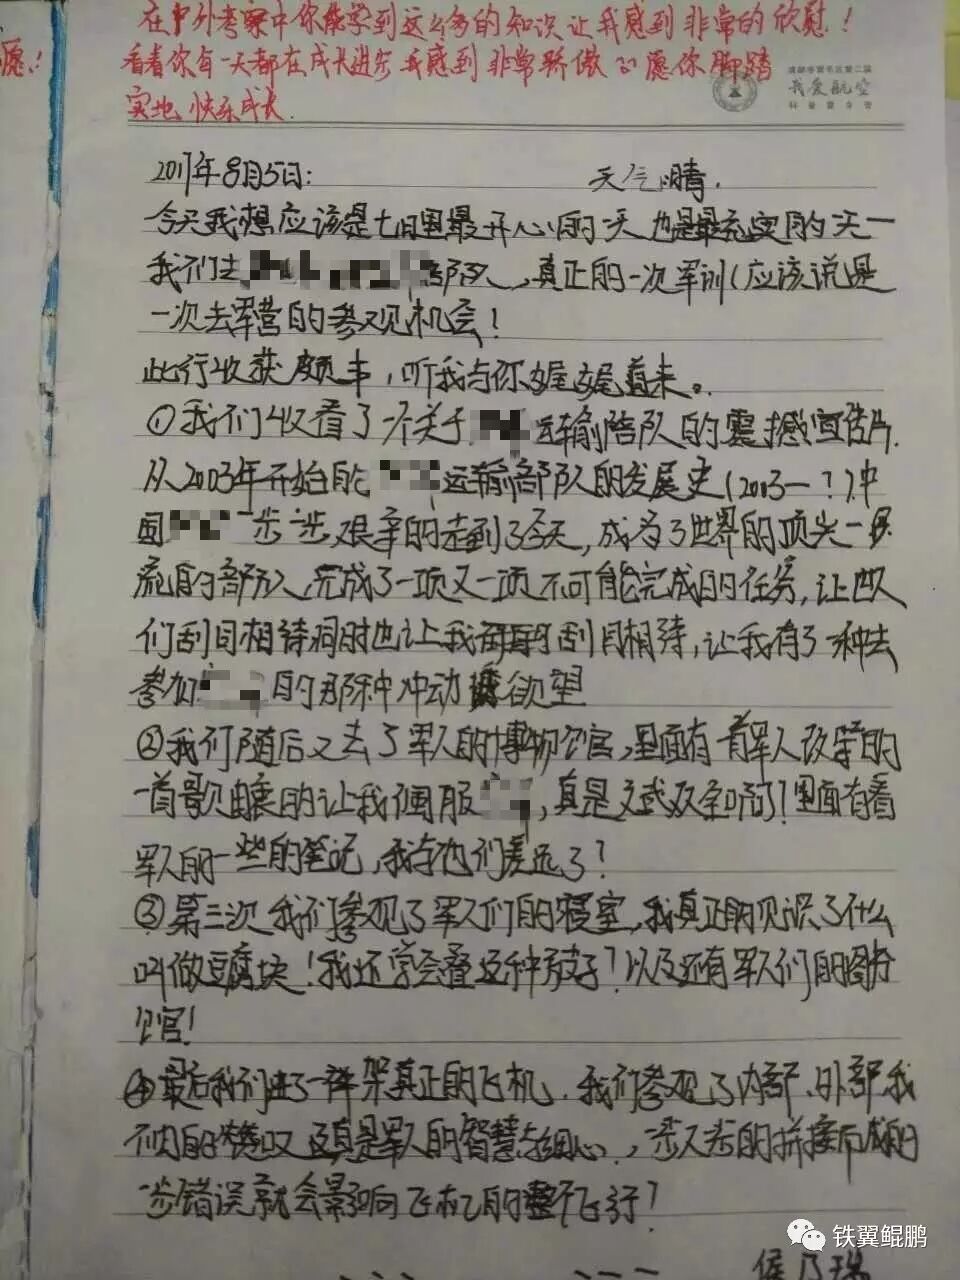 在户外考察中你能学到这么多的知识让我感到非常的欣慰！
愿！
看着你每一天都在成长进步我感到非常骄傲 愿你脚踏
实地、快乐成长.
我爱航空
2017年8月5日：
天气晴.
今天我想应该是七日里最开心的一天也是最充实的一天
我们去 部队，真正的一次军训（应该说是
一次去军营的参观机会！
此行收获颇丰，听我与你娓娓道来。
①我们收看了一个关于 运输部队的震撼宣传片.
从2003年开始的 运输部队的发展史（2003—？）.中
国 一步一步艰辛的走到了今天，成为了世界的顶尖一
流的部队，完成了一项又一项不可能完成的任务，让
们刮目相待同时也让我 刮目相待，让我有了一种去
参加 的那种冲动 欲望
②我们随后又去了军人的博物馆，里面有一首军人改编的
一首歌 的让我佩服 ，真是文武双全啊！里面有看
军人的一些的笔记，我与他们差远了？
③第三次我们参观了军人们的寝室，我真正的见识了什么
叫做豆腐块！我还学会叠这种被子？以及还有军人们的图书
馆！
④最后我们进了一 架真正的飞机，我们参观了内部、外部我
不由的赞叹 真是军人的智慧与细心，一步又一步的拼接而成的
一步错误就会影响飞机的整个飞行？
侯乃瑞
铁翼鲲鹏